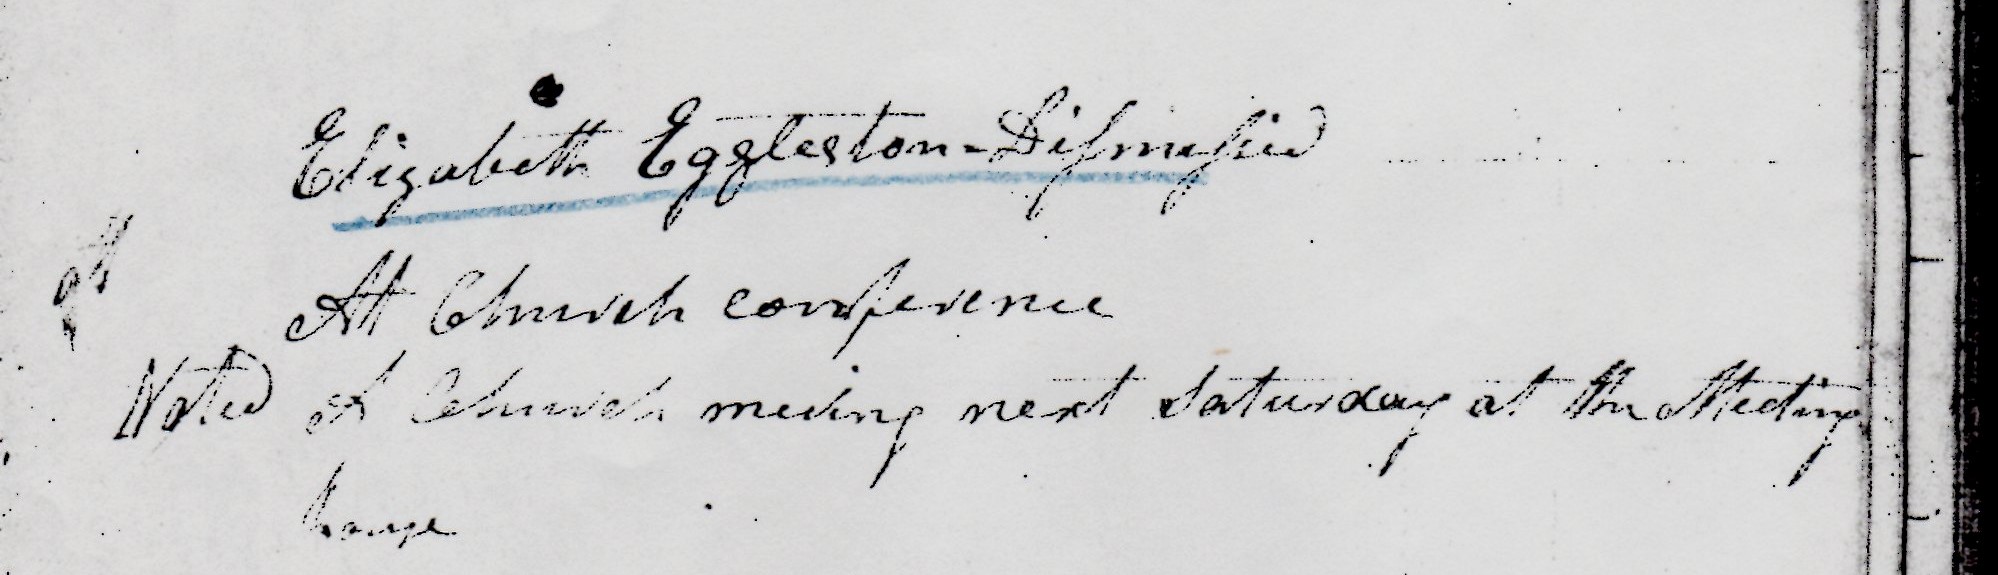 Elizabeth Eggleston - Dismissed
9th At Church conference
Noted A Church meeing next Saturday at the Meeting
house